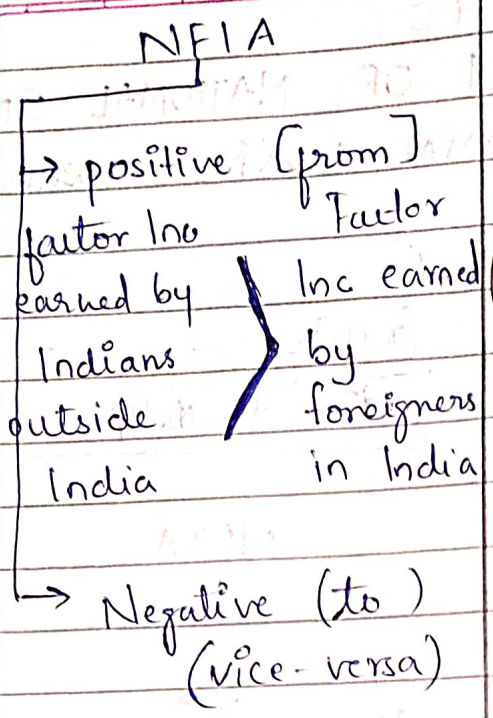 NFIA
→ positive [from]
factor Inc
earned by
Indians
outside
India
>
Factor
Inc earned
by
foreigners
in India
→ Negative (to)
(vice-versa)